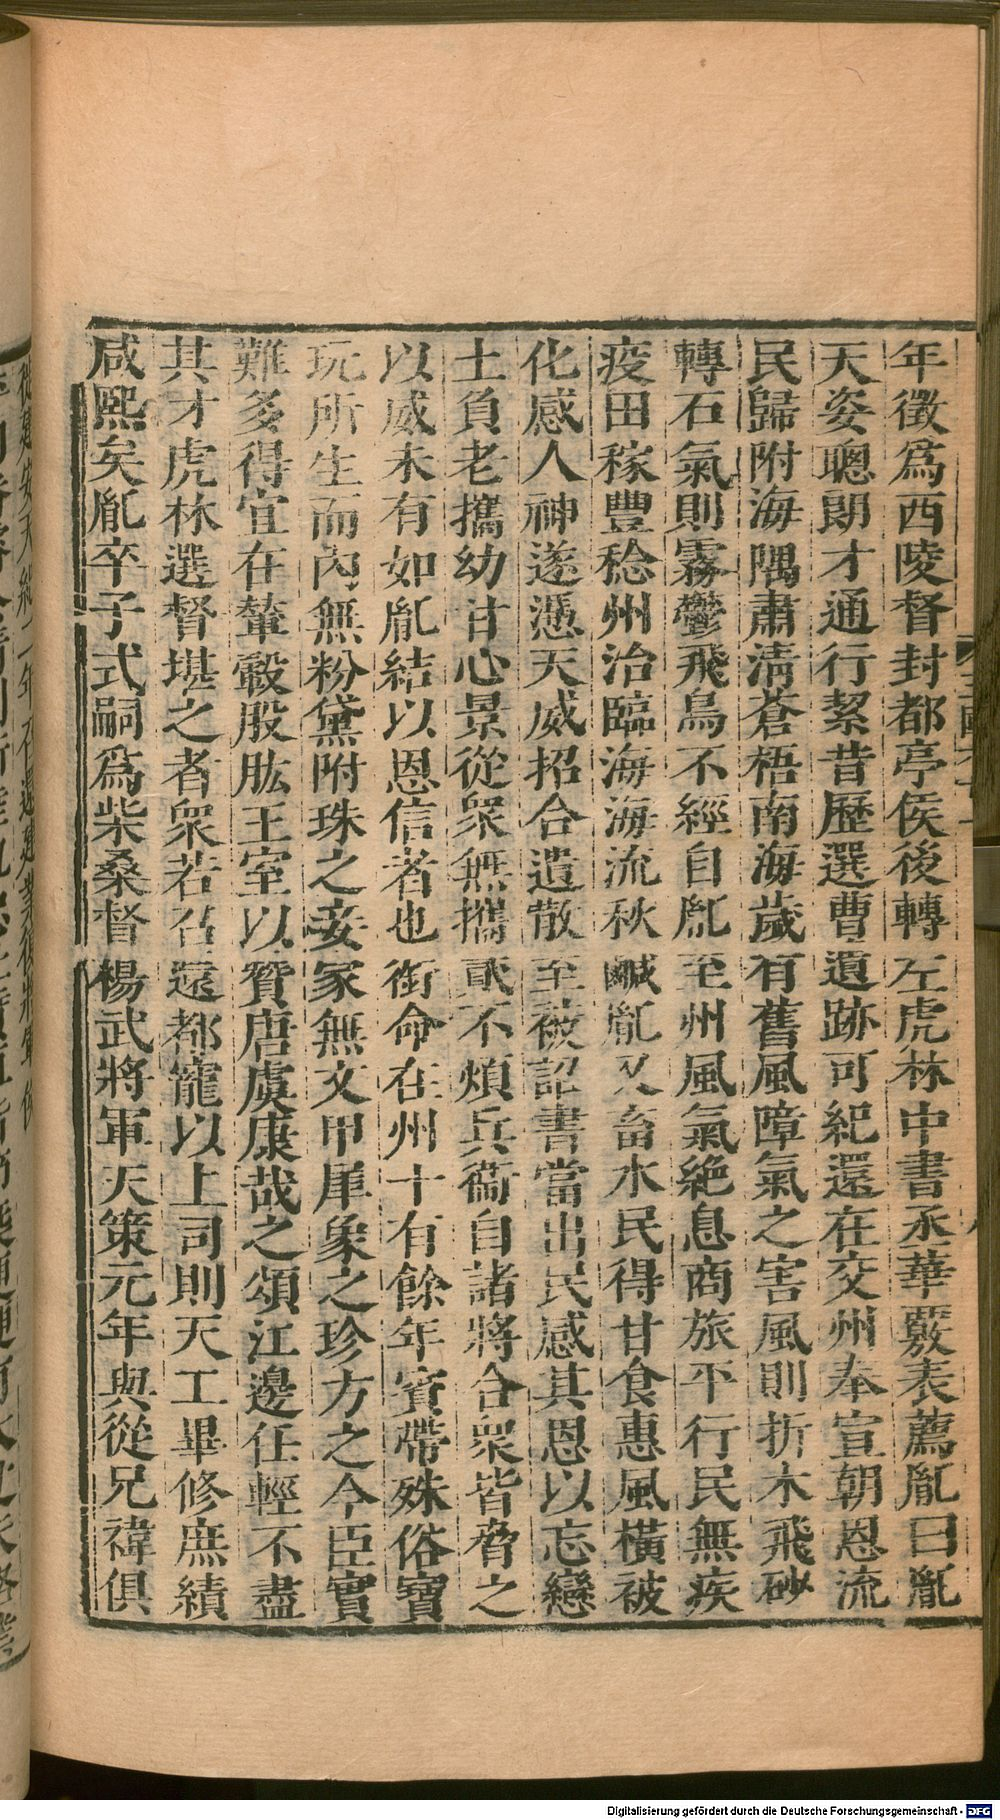 年徵爲西陵督封都亭侯後轉左虎林中書丞華覈表薦胤曰胤
天姿聰朗才通行絜昔歷選曹遺跡可紀還在交州奉宣朝恩流
民歸附海隅肅清蒼梧南海歲有舊風障氣之害風則折木飛砂
轉石氣則霧鬱飛鳥不經自胤至州風氣絶息商旅平行民無疾
疫田稼豐稔州治臨海海流秋鹹胤又畜水民得甘食惠風橫被
化感人神遂憑天威招合遺散至被詔書當出民感其恩以忘戀
土負老攜幼甘心景從衆無攜貳不煩兵衞自諸將合衆皆脅之
以威未有如胤結以恩信者也銜命在州十有餘年賓帶殊俗寶
玩所生而內無粉黛附珠之妾家無文甲犀象之珍方之今臣實
難多得宜在輦轂股肱王室以贊唐虞康哉之頌江邊任輕不盡
其才虎林選督堪之者衆若召還都寵以上司則天工畢修庶績
咸熙矣胤卒子式嗣爲柴桑督楊武將軍天策元年與從兄禕俱
Digitalisierung gefördert durch die Deutsche Forschungsgemeinschaft - DFG